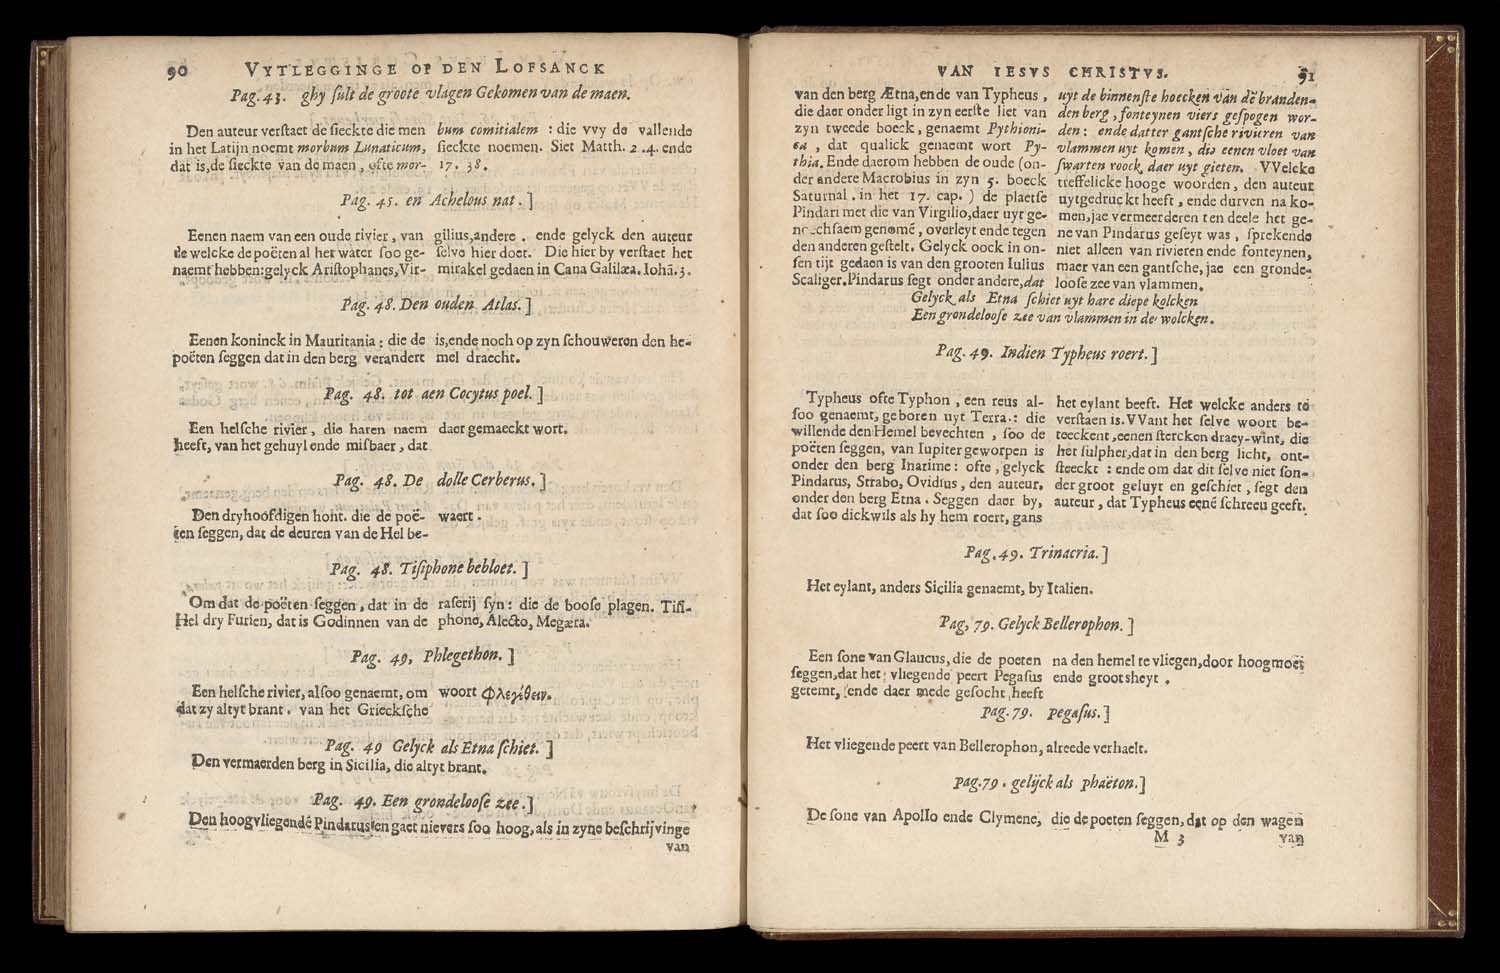 90 VYTLEGGINGE OP DEN LOFSANCK
Pag. 43. ghy ſult de groote vlagen Gekomen van de maen.
Den auteur verſtaet de ſieckte die men
in het Latijn noemt morbum Lunaticum,
dat is, de ſieckte van de maen, ofte mor-
bum comitialem : die vvy de vallende
ſieckte noemen. Siet Matth. 2.4. ende
17. 38.
Pag. 45. en Achelous nat.]
Eenen naem van een oude rivier, van
de welcke de poëten al het water ſoo ge-
naemt hebben: gelyck Ariſtophanes, Vir-
gilius, andere. ende gelyck den auteur
ſelve hier doet. Die hier by verſtaet het
mirakel gedaen in Cana Galilæa. Iohã. 3.
Pag. 48. Den ouden Atlas.]
Eenen koninck in Mauritania : die de
poëten ſeggen dat in den berg verandert
is, ende noch op zyn ſchouweren den he-
mel draecht.
Pag. 48. tot aen Cocytus poel.]
Een helſche rivier, die haren naem
heeft, van het gehuyl ende misbaer, dat
daer gemaeckt wort.
Pag. 48. De dolle Cerberus.]
Den dryhoofdigen hont. die de poë-
ten ſeggen, dat de deuren van de Hel be-
waert.
Pag. 48. Tiſiphone bebloet.]
Om dat de poëten ſeggen, dat in de
Hel dry Furien, dat is Godinnen van de
raſerij ſyn : die de booſe plagen. Tiſi-
phone, Alecto, Megæra.
Pag. 49, Phlegethon.]
Een helſche rivier, alſoo genaemt, om
dat zy altyt brant. van het Griecksche
woort φλεγέθειν.
Pag. 49 Gelyck als Etna ſchiet.]
Den vermaerden berg in Sicilia, die altyt brant.
Pag. 49. Een grondelooſe zee.]
Den hoogvliegendẽ Pindarus en gaet nievers ſoo hoog, als in zyne beſchrijvinge
van
VAN IESVS CHRISTVS. 91
van den berg Ætna, ende van Typheus,
die daer onder ligt in zyn eerſte liet van
zyn tweede boeck, genaemt Pythioni-
ca, dat qualick genaemt wort Py-
thia. Ende daerom hebben de oude (on-
der andere Macrobius in zyn 5. boeck
Saturnal. in het 17. cap.) de plaetſe
Pindari met die van Virgilio, daer uyt ge-
noechſaem genomẽ, overleyt ende tegen
den anderen geſtelt. Gelyck oock in on-
ſen tijt gedaen is van den grooten Iulius
Scaliger. Pindarus ſegt onder andere, dat
uyt de binnenſte hoecken van dẽ branden-
den berg, fonteynen viers geſpogen wor-
den : ende datter gantſche rivieren van
vlammen uyt komen, die eenen vloet van
ſwarten roock daer uyt gieten. VVelcke
treffelicke hooge woorden, den auteur
uytgedruckt heeft, ende durven na ko-
men, jae vermeerderen ten deele het ge-
ne van Pindarus geſeyt was, ſprekende
niet alleen van rivieren ende fonteynen,
maer van een gantſche, jae een gronde-
looſe zee van vlammen.
Gelyck als Etna ſchiet uyt hare diepe kolcken
Een grondelooſe zee van vlammen in de wolcken.
Pag. 49. Indien Typheus roert.]
Typheus ofte Typhon, een reus al-
ſoo genaemt, geboren uyt Terra.: die
willende den Hemel bevechten, ſoo de
poëten ſeggen, van Iupiter geworpen is
onder den berg Inarime : ofte, gelyck
Pindarus, Strabo, Ovidius, den auteur,
onder den berg Etna. Seggen daer by,
dat ſoo dickwils als hy hem roert, gans
het eylant beeft. Het welcke anders te
verſtaen is. VVant het ſelve woort be-
teeckent, eenen ſtercken draey-wint, die
het ſulpher, dat in den berg licht, ont-
ſteeckt : ende om dat dit ſelve niet ſon-
der groot geluyt en geſchiet, ſegt den
auteur, dat Typheus eenẽ ſchreeu geeft.
Pag. 49. Trinacria.]
Het eylant, anders Sicilia genaemt, by Italien.
Pag, 79. Gelyck Bellerophon.]
Een ſone van Glaucus, die de poeten
ſeggen, dat het vliegende peert Pegaſus
getemt, ende daer mede geſocht heeft
na den hemel te vliegen, door hoogmoet
ende grootsheyt.
Pag. 79. Pegaſus.]
Het vliegende peert van Bellerophon, alreede verhaelt.
Pag. 79. gelijck als phaëton.]
De ſone van Apollo ende Clymene, die de poeten ſeggen, dat op den wagen
M 3 van